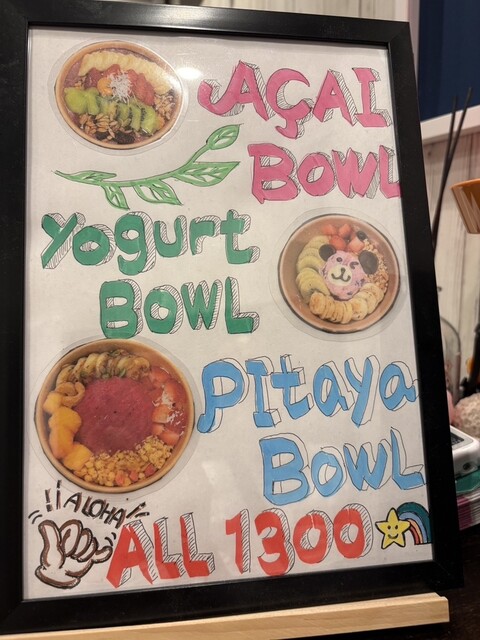 AÇAI
BOWL
Yogurt
BOWL
PItaya
BOWL
!! ALOHA !!
ALL 1300